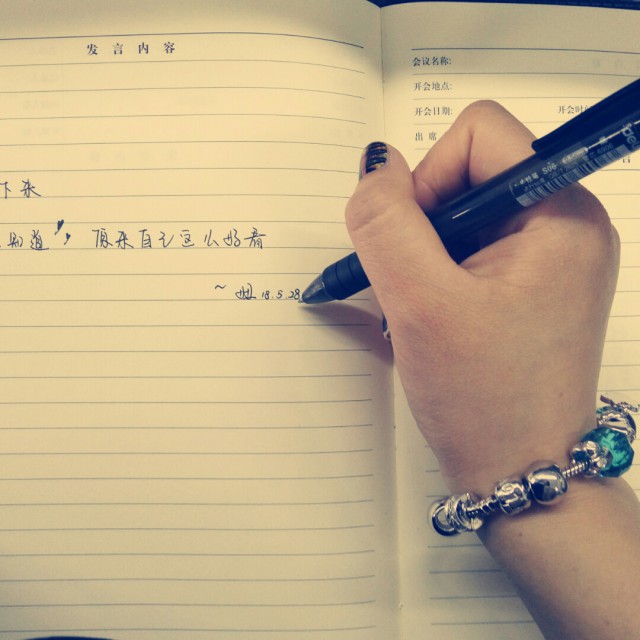 发言内容
下来
知道，原来自己这么好看
~ 18.5.28
会议名称:
开会地点:
开会日期:
开会时
出席
言